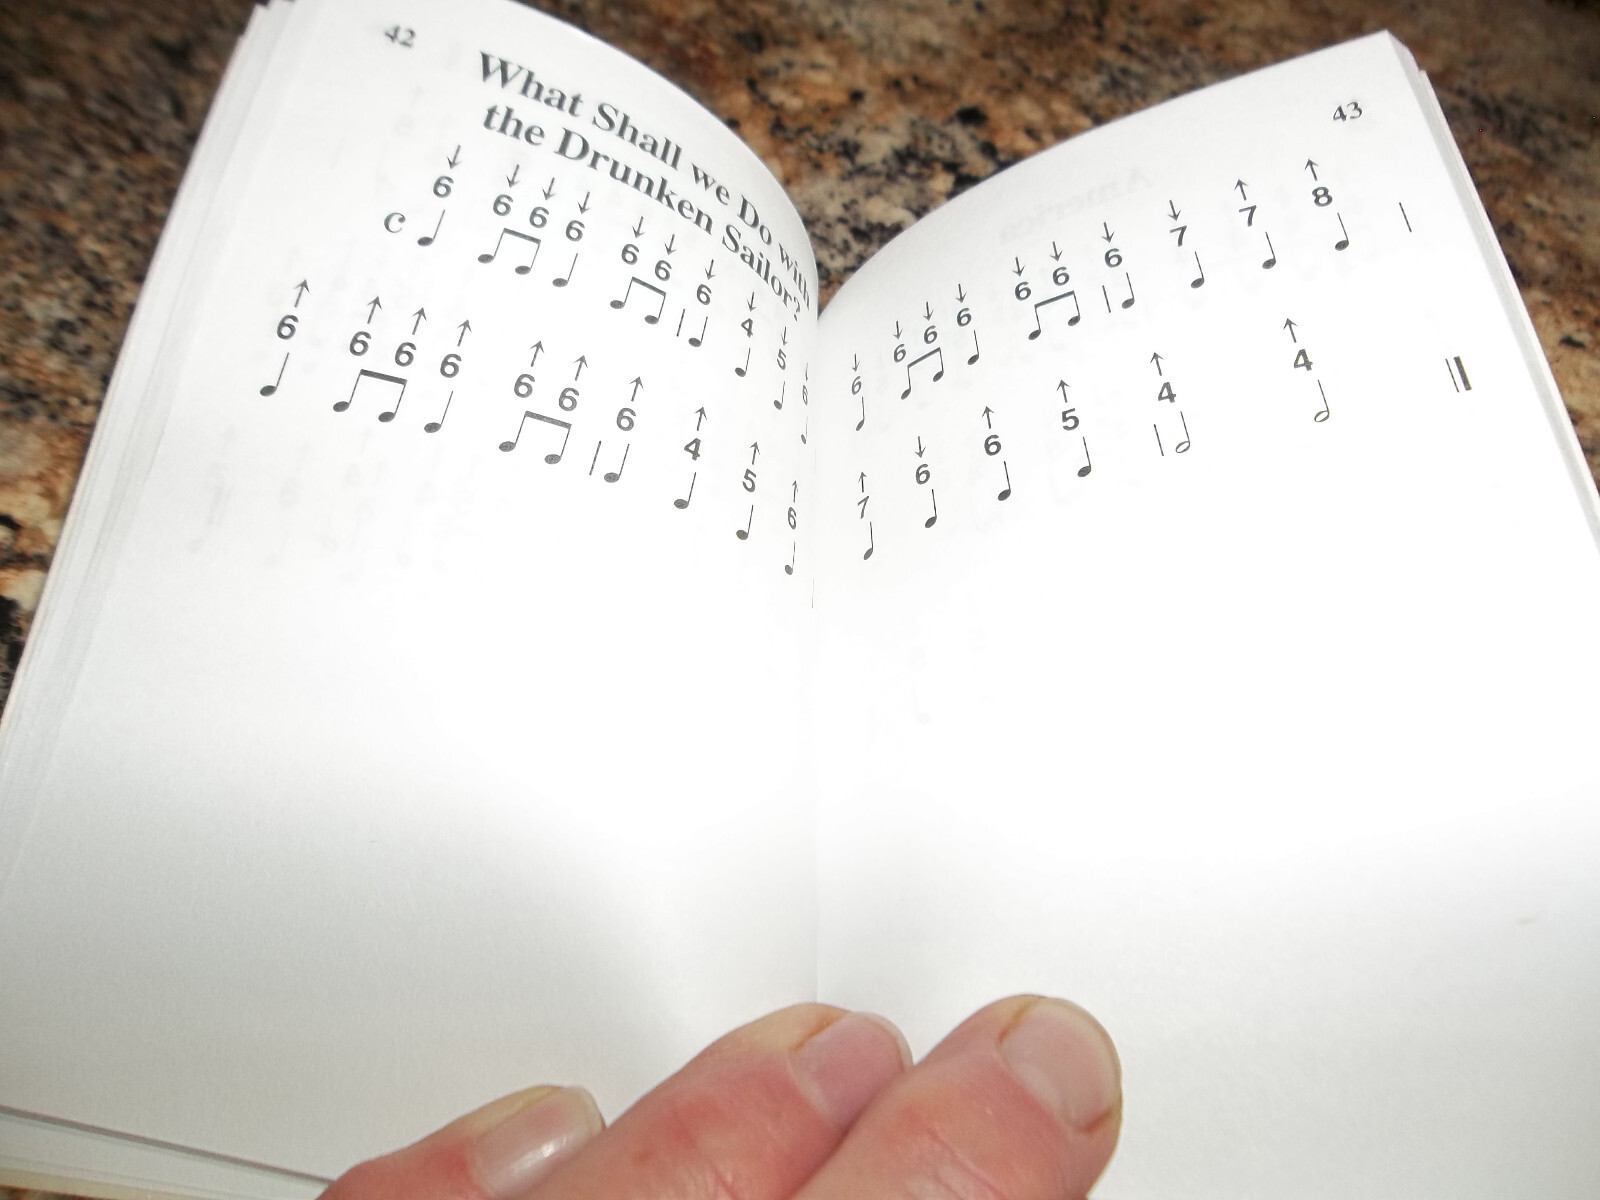 42
What Shall we Do with
the Drunken Sailor?
↓ ↓ ↓ ↓ ↓ ↓ ↓ ↓ ↓ ↓
6 6 6 6 6 6 6 4 5 6
C
↑ ↑ ↑ ↑ ↑ ↑ ↑ ↑ ↑ ↑
6 6 6 6 6 6 6 4 5 6
43
↓ ↓ ↓ ↓ ↓ ↓ ↓ ↓ ↑ ↑
6 6 6 6 6 6 6 7 7 8
↑ ↓ ↑ ↑ ↑ ↑
7 6 6 5 4 4